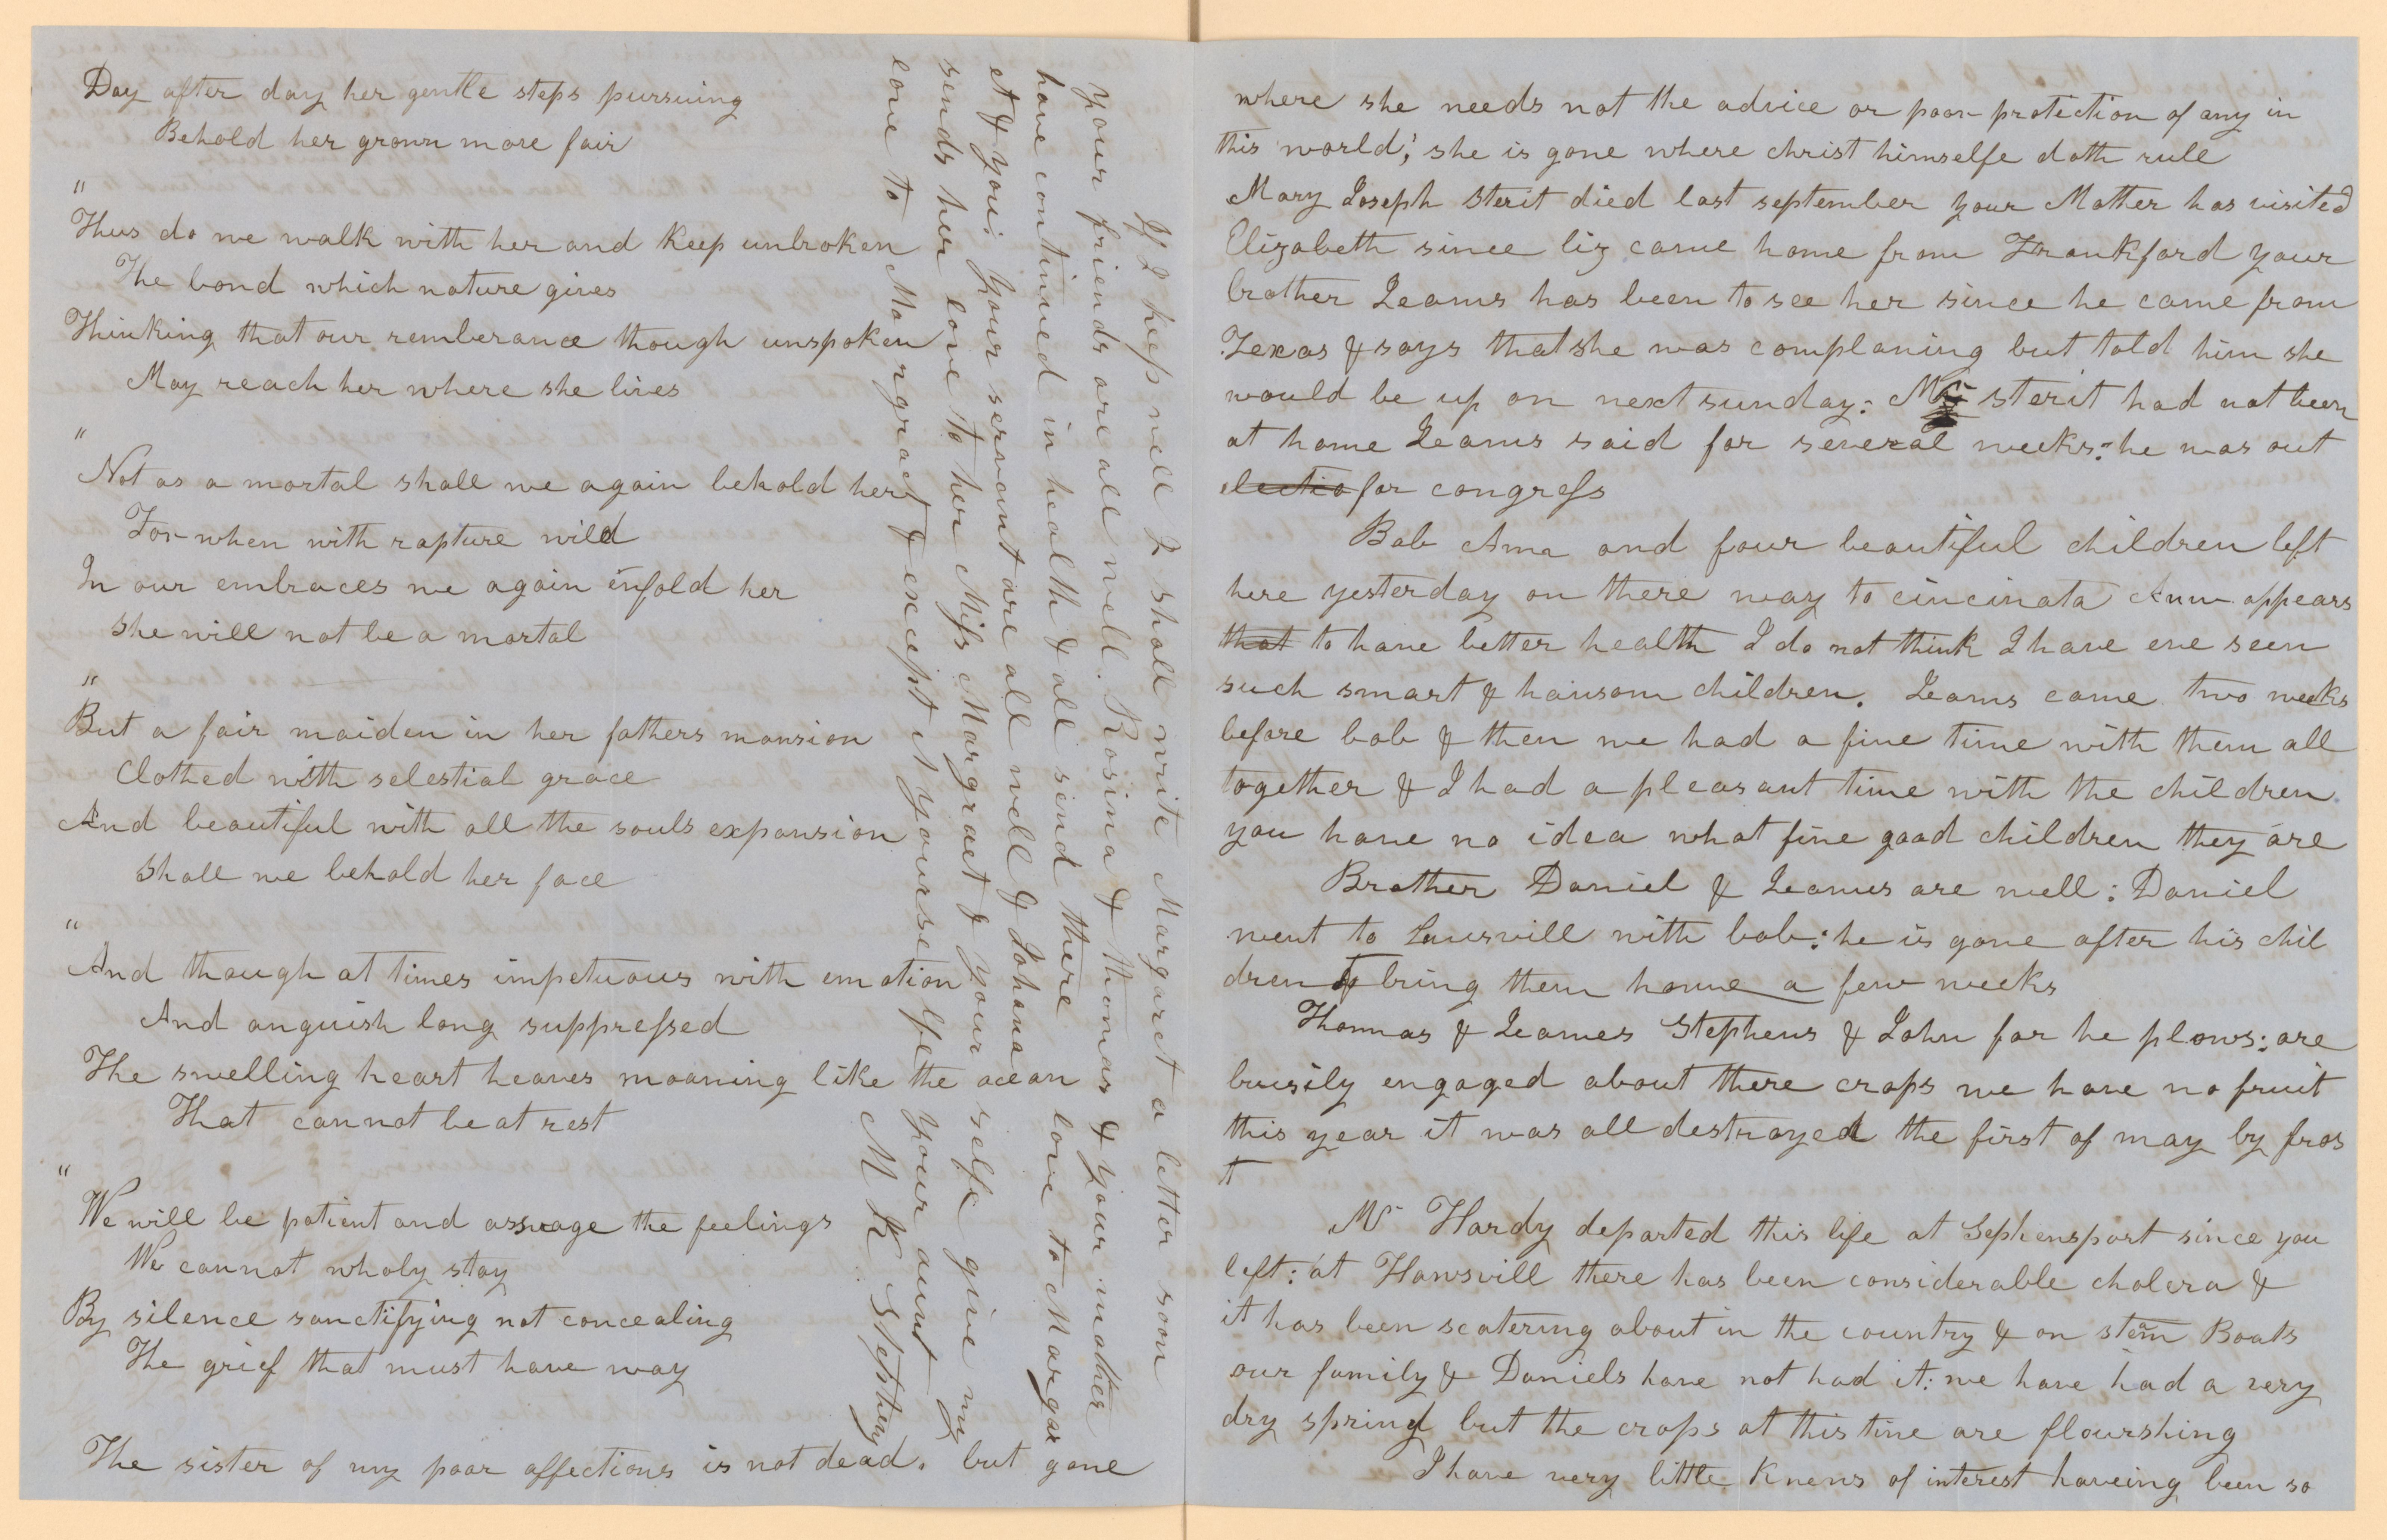 Day after day her gentle steps pursuing
Behold her grown more fair
"
Thus do we walk with her and keep unbroken
The bond which nature gives
Thinking that our remberance though unspoken
May reach her where she lives
"
Not as a mortal shall we again behold her
For when with rapture wild
In our embraces we again enfold her
She will not be a mortal
"
But a fair maiden in her fathers mansion
Clothed with selestial grace
And beautiful with all the souls expansion
Shall we behold her face
"
And though at times impetuous with emotion
And anguish long suppressed
The swelling heart heaves moaning like the ocean
That cannot be at rest
"
We will be patient and asswage the feelings
We cannot wholy stay
By silence sanctifying not concealing
The grief that must have way
The sister of my poor affections is not dead. but gone
If I keep well I shall write Margaret a letter soon
your friends are all well. Rosina & thomas & your mather
have continued in health & all send there love to Margar
et & you; your servant are all well & Johana
sends her love to her Miss Margraet & your selfe give my
love to Margraet & except it yourselfe your aunt
M K Stephens
where she needs not the advice or poor protection of any in
this world; she is gone where christ himselfe doth rule
Mary Joseph Sterit died last september your Mother has visited
Elizabeth since liz came home from Frankford your
brother Jeams has been to see her since he came from
Texas & says that she was complaning but told him she
would be up on next sunday: Mr Sterit had not been
at home Jeams said for several weeks: he was out
electio for congress
Bob Ama and four beautiful children left
here yesterday on there way to cincinata Ann appears
that to have better health I do not think I have eve seen
such smart & hansom children. Jeams came two weeks
before bob & then we had a fine time with them all
together & I had a pleasant time with the children
you have no idea what fine good children they are
Brother Daniel & Jeames are well: Daniel
went to Luisvill with bob: he is gone after his chil
dren to bring them home a few weeks
Thomas & Jeames Stephens & John for he plows: are
buisily engaged about there crops we have no fruit
this year it was all destroyed the first of may by fros
t
Mr Hardy departed this life at Sephensport since you
left: at Hawsvill there has been considerable cholera &
it has been scatering about in the country & on stam Boats
our family & Daniels have not had it: we have had a very
dry spring but the crops at this time are flourshing
I have very little knews of interest haveing been so